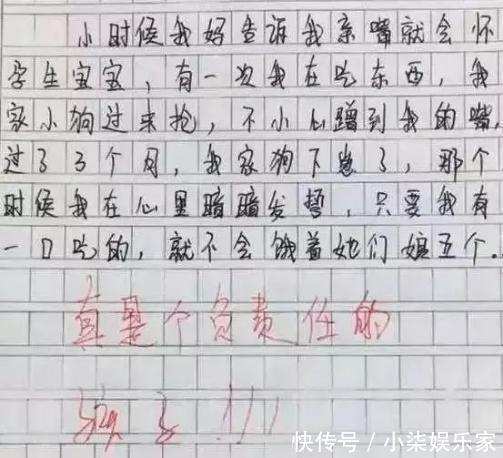 小时候我妈告诉我亲嘴就会怀
孕生宝宝，有一次我在吃东西，我
家小狗过来抢，不小心蹭到我的嘴，
过了3个月，我家狗下崽了，那个
时候我在心里暗暗发誓，只要我有
一口吃的，就不会饿着她们娘五个。
真是个负责任的
孩子!!!
快传号／小柒娱乐家